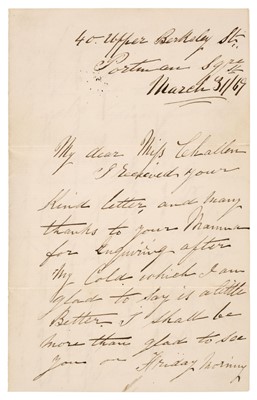 40. Upper Berkeley St.
Portman Sqre
March 31/69
My dear Miss Challen
I received your
Kind letter, and many
thanks to your Mamma
for Enquiring after
My Cold which I am
glad to say is a little
Better. I shall be
more than glad to see
you on Friday Morning